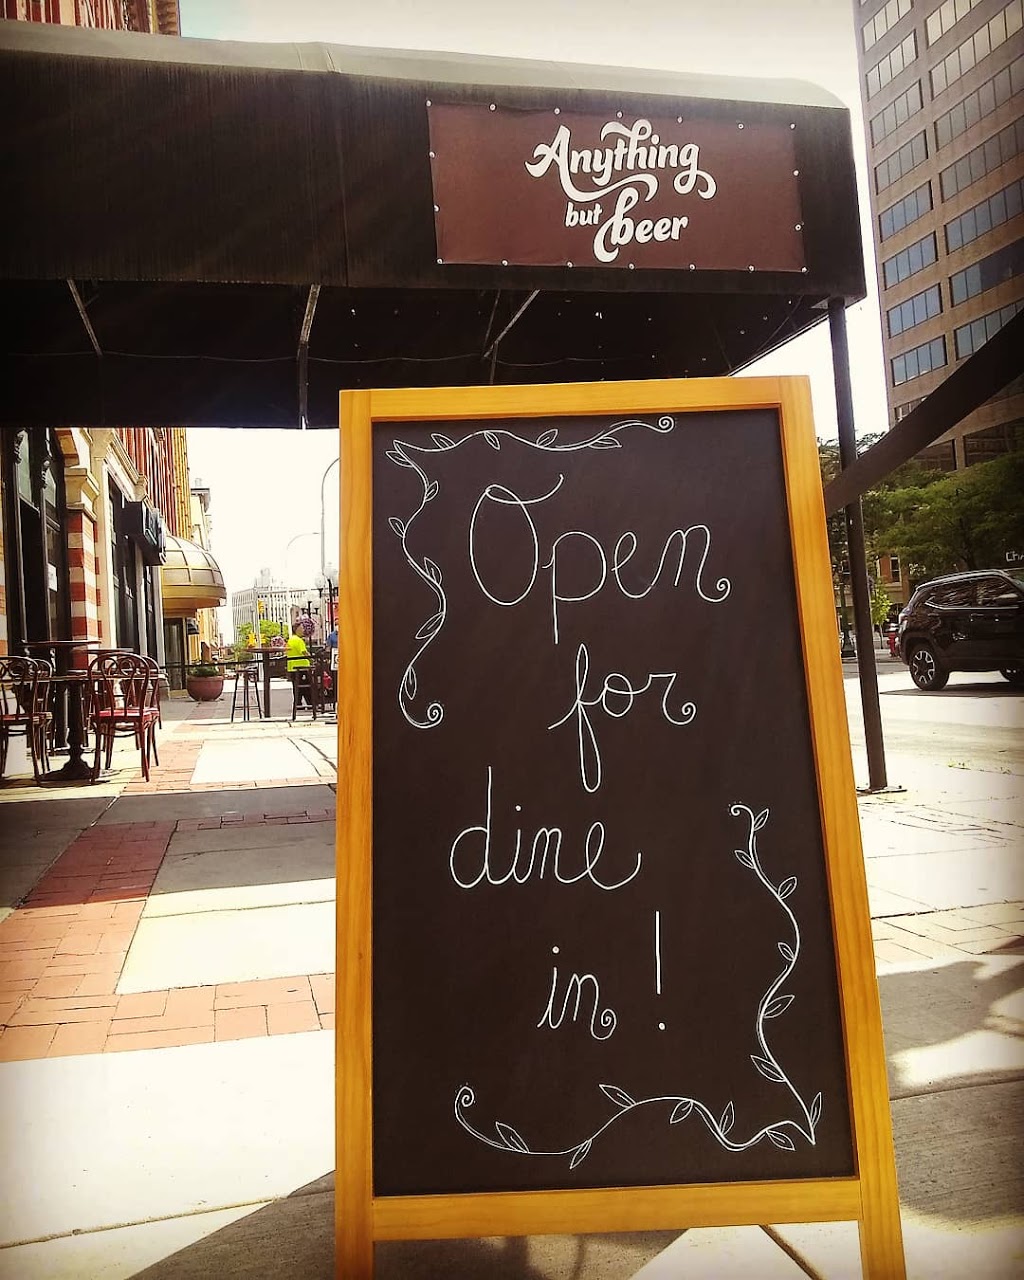 Anything
but beer
Open
for
dine
in!